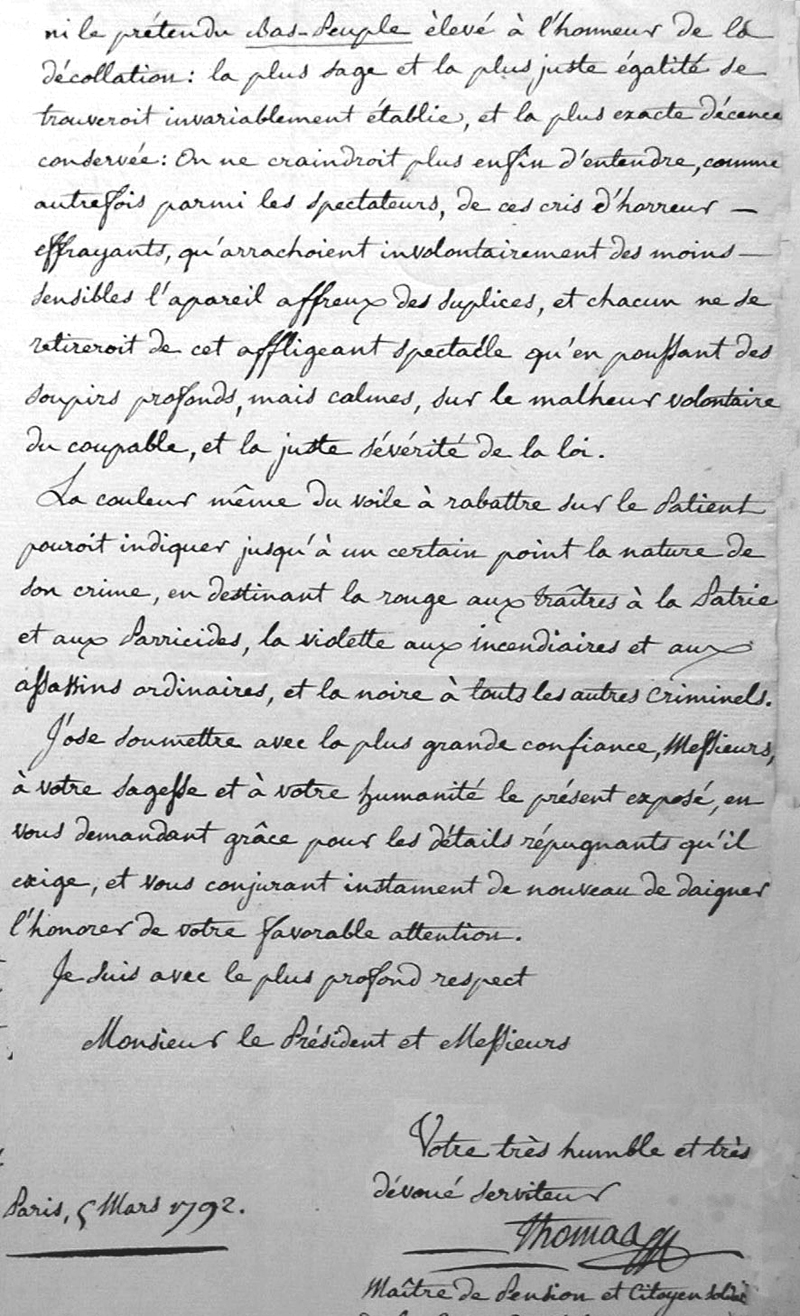 ni le prétendu Bas-Peuple élevé à l'honneur de la
décollation : la plus sage et la plus juste égalité se
trouveroit invariablement établie, et la plus exacte décence
conservée : On ne craindroit plus enfin d'entendre, comme
autrefois parmi les spectateurs, de ces cris d'horreur —
effrayants, qu'arrachoient involontairement des moins —
sensibles l'apareil affreux des suplices, et chacun ne se
retireroit de cet affligeant spectacle qu'en poussant des
soupirs profonds, mais calmes, sur le malheur volontaire
du coupable, et la juste sévérité de la loi.
La couleur même du voile à rabattre sur le Patient
pouroit indiquer jusqu'à un certain point la nature de
son crime, en destinant la rouge aux traîtres à la Patrie
et aux Parricides, la violette aux incendiaires et aux
assassins ordinaires, et la noire à touts les autres criminels.
J'ose soumettre avec la plus grande confiance, Messieurs,
à votre sagesse et à votre humanité le présent exposé, en
vous demandant grâce pour les détails répugnants qu'il
exige, et vous conjurant instament de nouveau de daigner
l'honorer de votre favorable attention.
Je suis avec le plus profond respect
Monsieur le Président et Messieurs
Votre très humble et très
dévoué serviteur
Paris, 5 Mars 1792.
Thomas
Maître de Pension et Citoyen